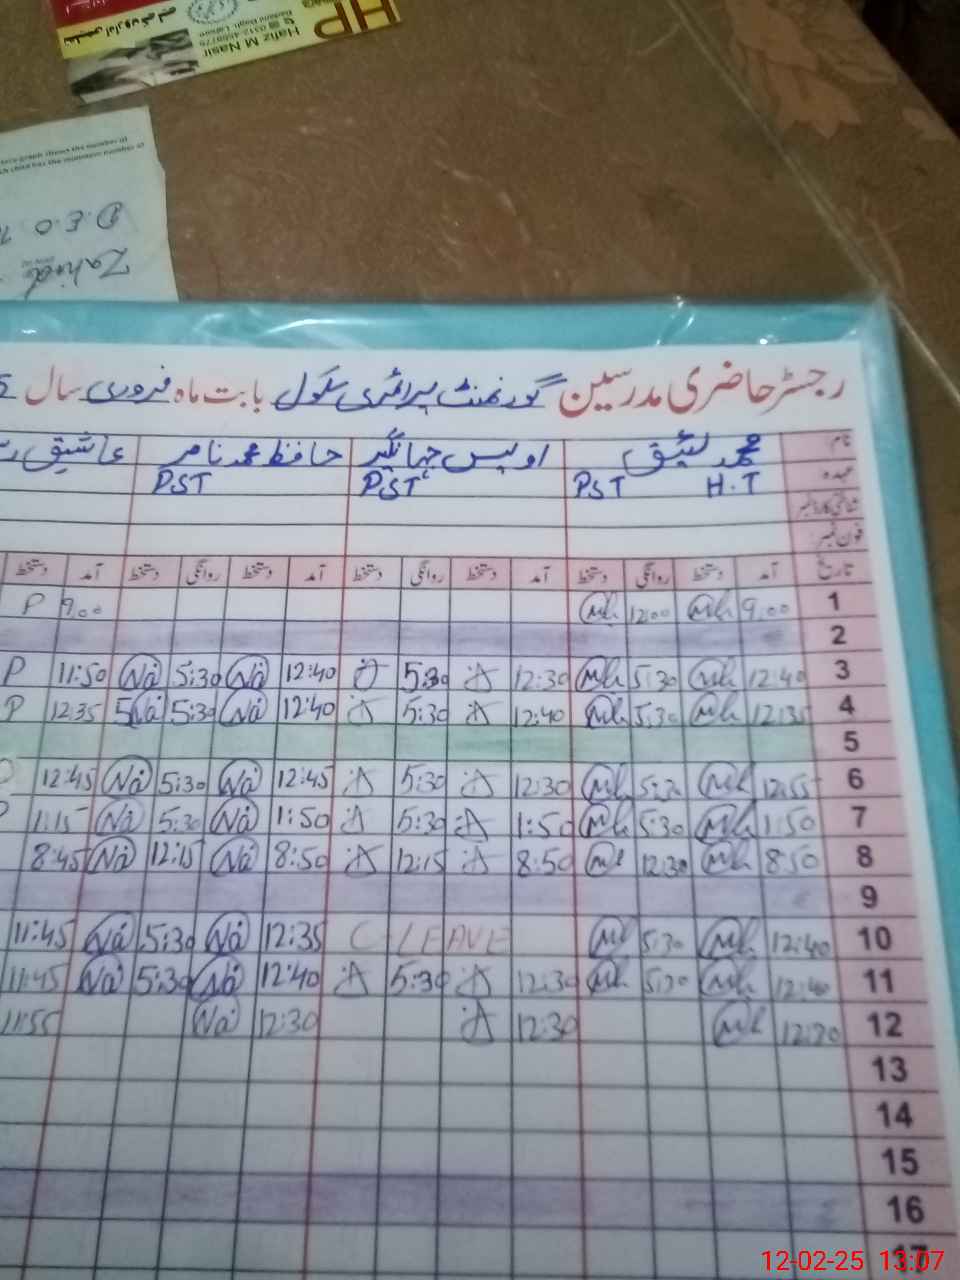 HP
Hafiz M Nasir
D.E.O
Zahid
رجسٹر حاضری مدرسین گورنمنٹ پرائمری سکول بابت ماہ فروری سال
نام محمد لئیق اویس جہانگیر حافظ محمد ناصر عاشیق
عہدہ H.T PST PST PST
شناختی کارڈ نمبر
فون نمبر:
تاریخ آمد دستخط روانگی دستخط آمد دستخط روانگی دستخط آمد دستخط روانگی دستخط آمد دستخط
1 9:00 Mh 12:00 Mh 9:00 P
2
3 12:40 Mh 5:30 Mh 12:30 5:30 12:40 Na 5:30 Na 11:50 P
4 12:35 Mh 5:30 Mh 12:40 5:30 12:40 Na 5:30 Na 12:35 P
5
6 12:55 Mh Mh 12:30 5:30 12:45 Na 5:30 Na 12:45
7 1:50 Mh 5:30 Mh 1:50 5:30 1:50 Na 5:30 Na 1:15
8 8:50 Mh 12:30 Mh 8:50 12:15 8:50 Na 12:15 Na 8:45
9
10 12:40 Mh 5:30 Mh C-LEAVE 12:35 Na 5:30 Na 11:45
11 12:40 Mh 5:30 Mh 12:30 5:30 12:40 Na 5:30 Na 11:45
12 12:30 Mh 12:30 12:30 Na 11:55
13
14
15
16
17
12-02-25 13:07